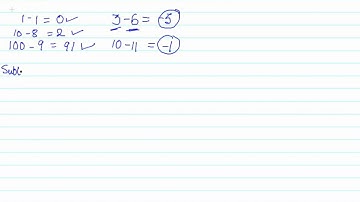 1-1 = 0 ✓
10-8 = 2 ✓
100-9 = 91 ✓
3-6 = -5
10-11 = -1
Subt